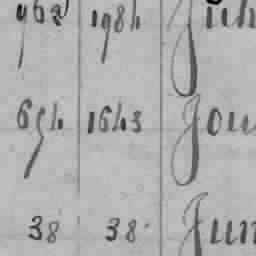 962 1984
654 1643 Jou
38 38 Jun